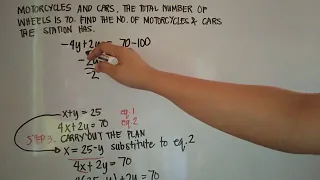 MOTORCYCLES AND CARS. THE TOTAL NUMBER OF
WHEELS IS 70. FIND THE NO. OF MOTORCYCLES & CARS
THE STATION HAS.
-4y+2y = 70-100
-2y
-2
x+y = 25 eq.1
4x+2y = 70 eq.2
STEP 3. CARRY OUT THE PLAN
x = 25-y substitute to eq.2
4x + 2y = 70
+ 2y = 70